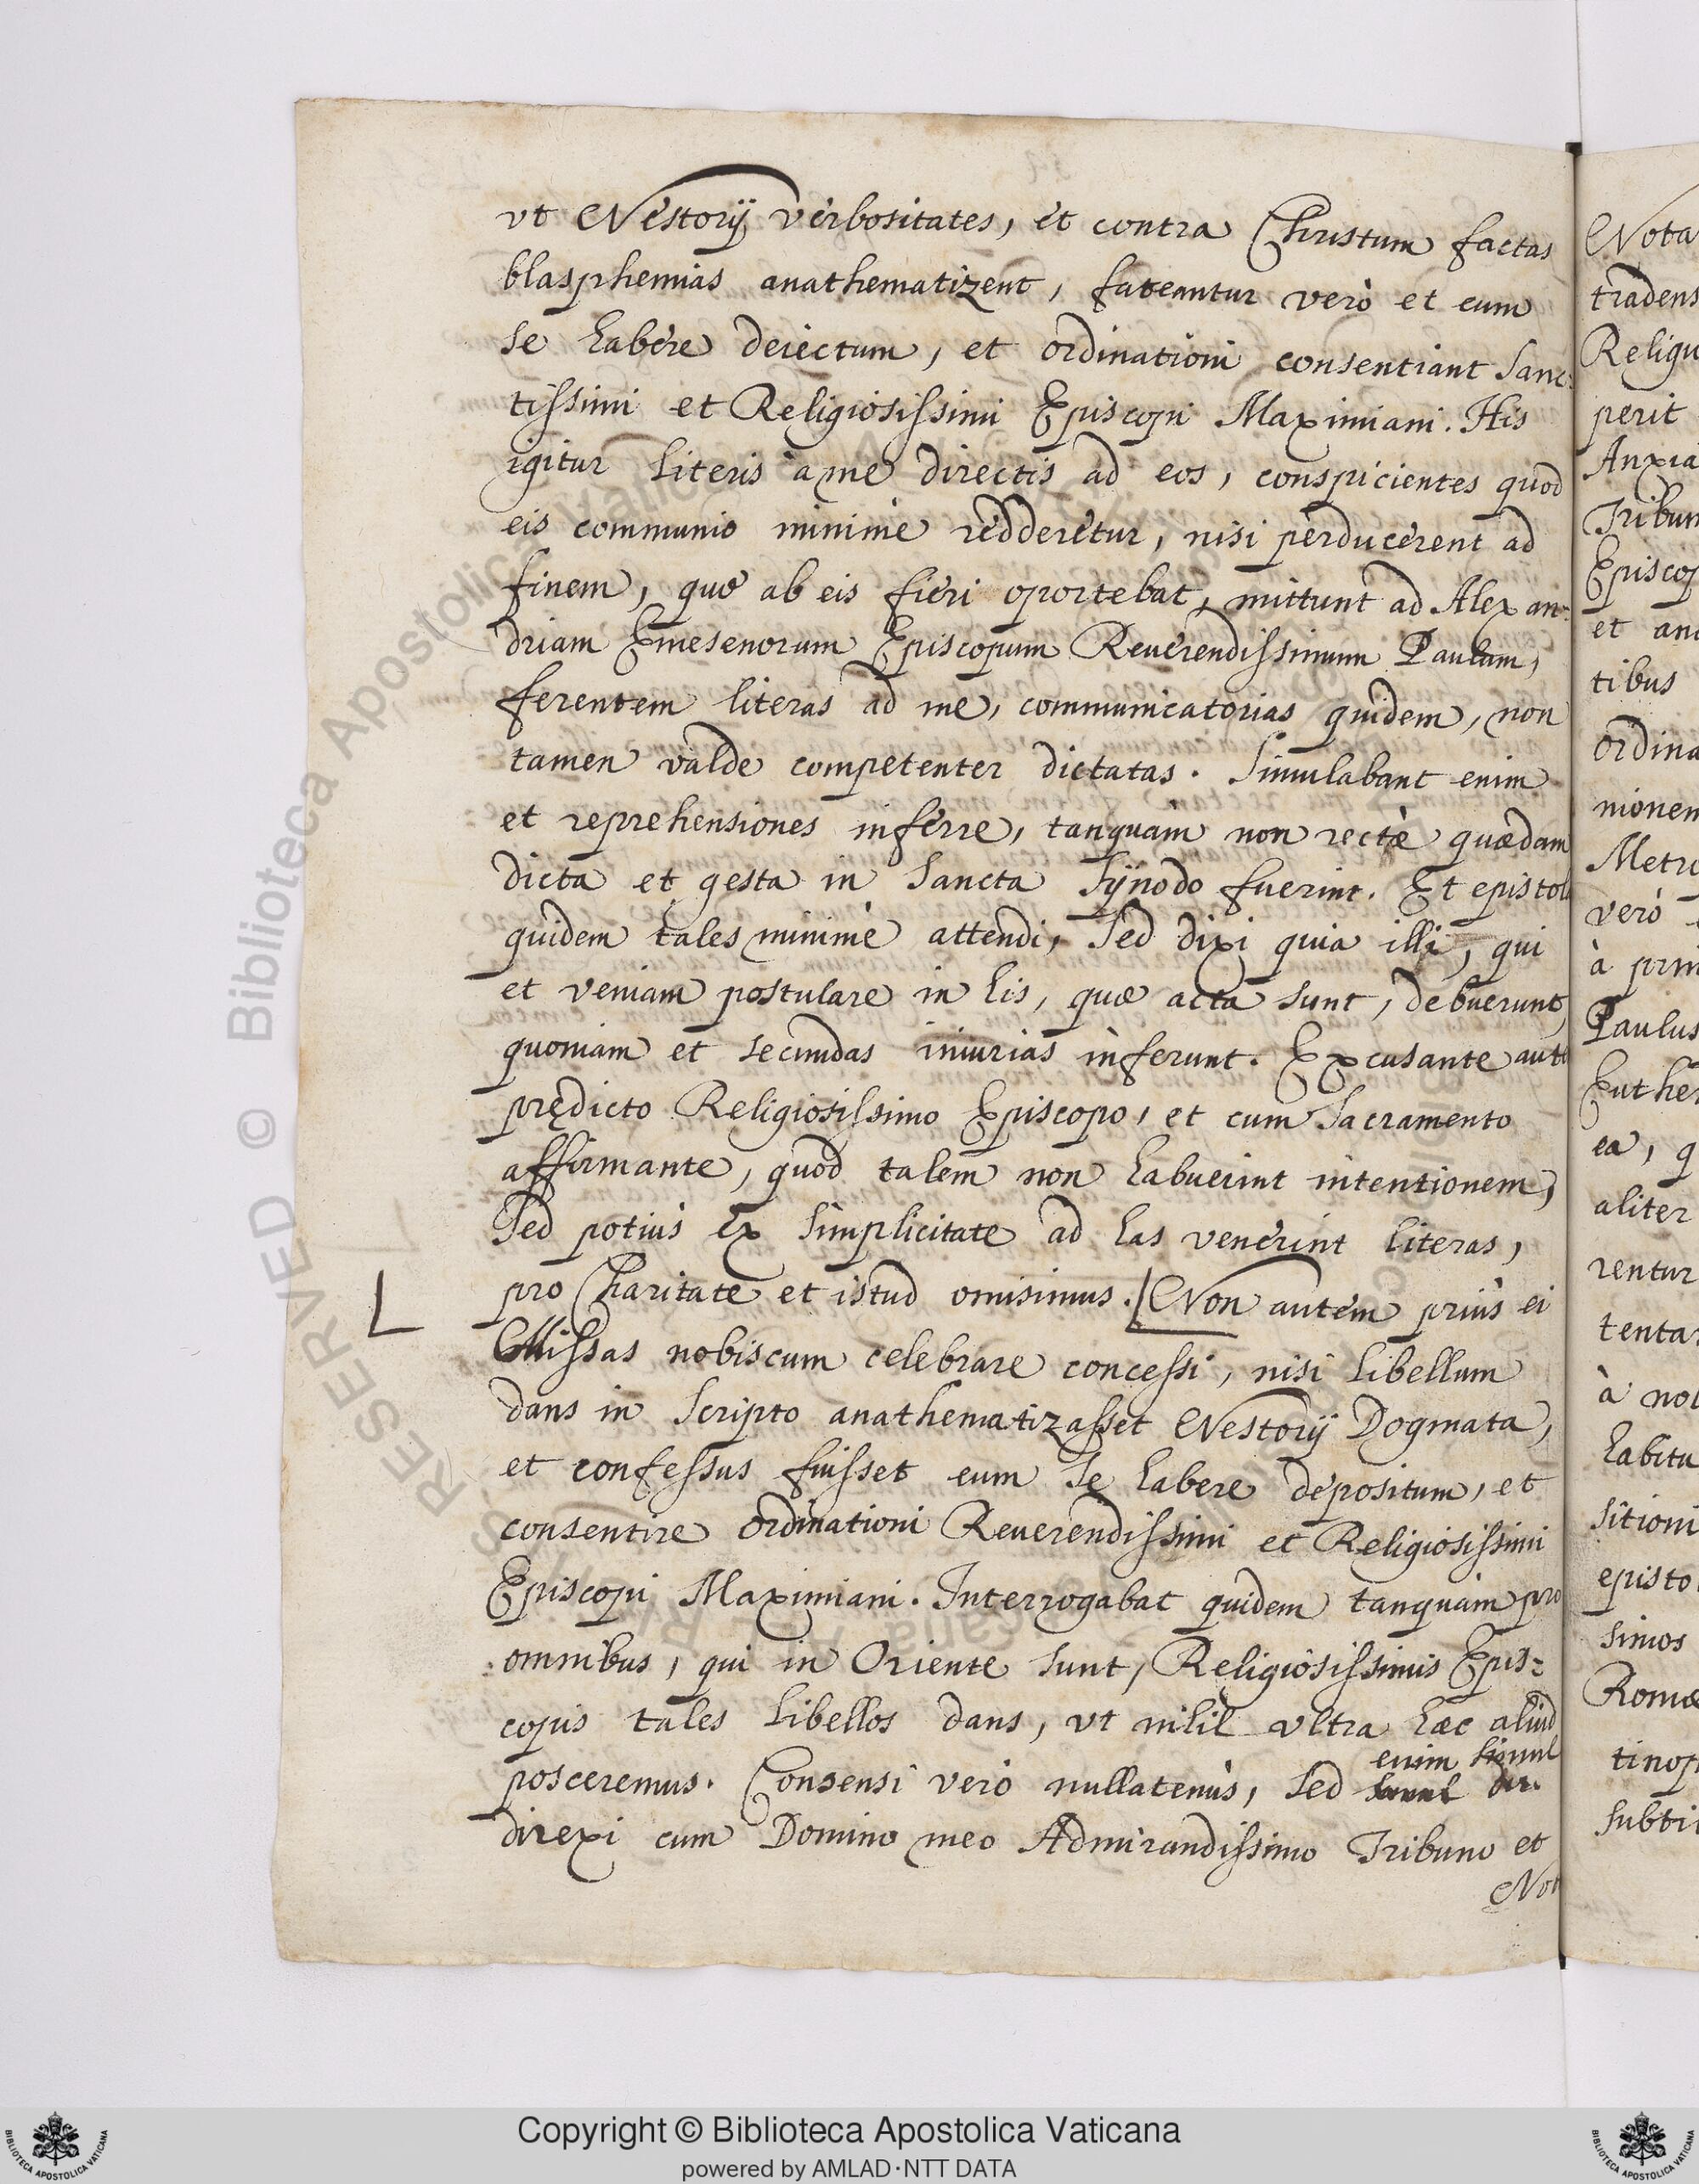 vt Nestorij verbositates, et contra Christum factas
blasphemias anathematizent, fateantur verò et eum
se habere deiectum, et ordinationi consentiant Sanc-
tissimi et Religiosissimi Episcopi Maximiani. His
igitur literis à me directis ad eos, conspicientes quod
eis communio minimè redderetur, nisi perducerent ad
finem, quo ab eis fieri oportebat, mittunt ad Alexan-
driam Emesenorum Episcopum Reuerendissimum Paulum,
ferentem literas ad me, communicatorias quidem, non
tamen valde competenter dictatas. Simulabant enim
et reprehensiones inferre, tanquàm non rectè quædam
dicta et gesta in Sancta Sÿnodo fuerint. Et epistol
quidem tales minimè attendi, Sed dixi quia illi, qui
et veniam postulare in his, quæ acta sunt, debuerunt,
quoniam et secundas iniurias inferunt. Excusante aut
prędicto Religiosissimo Episcopo, et cum Sacramento
affirmante, quod talem non habuerint intentionem,
Sed potiùs ex simplicitate ad has venerint literas,
pro Charitate et istud omisimus. Non autem priùs ei
Missas nobiscum celebrare concessi, nisi libellum
dans in Scripto anathematizasset Nestorij Dogmata,
et confessus fuisset eum se habere depositum, et
consentire ordinationi Reuerendissimi et Religiosissimi
Episcopi Maximiani. Interrogabat quidem tanquàm pro
omnibus, qui in Oriente sunt, Religiosissimis Epis-
copis tales libellos dans, vt nihil vltra hæc aliud
enim simul
posceremus. Consensi verò nullatenùs, sed
direxi cum Domino meo Admirandissimo Tribuno et
Not
Nota
tradens
Religi
perit
Anxia
Tribun
Episcop
et an
tibus
ordina
nionem
Metr
verò
à prim
Paulus
Euther
ea, q
aliter
rentur
tenta
à no
habitu
sitioni
episto
simos
Romæ
tinop
subti
© Biblioteca Apostolica Vaticana
RESERVED
Copyright © Biblioteca Apostolica Vaticana
powered by AMLAD·NTT DATA
BIBLIOTECA APOSTOLICA VATICANA
BIBLIOTECA APOSTOLICA VATICANA